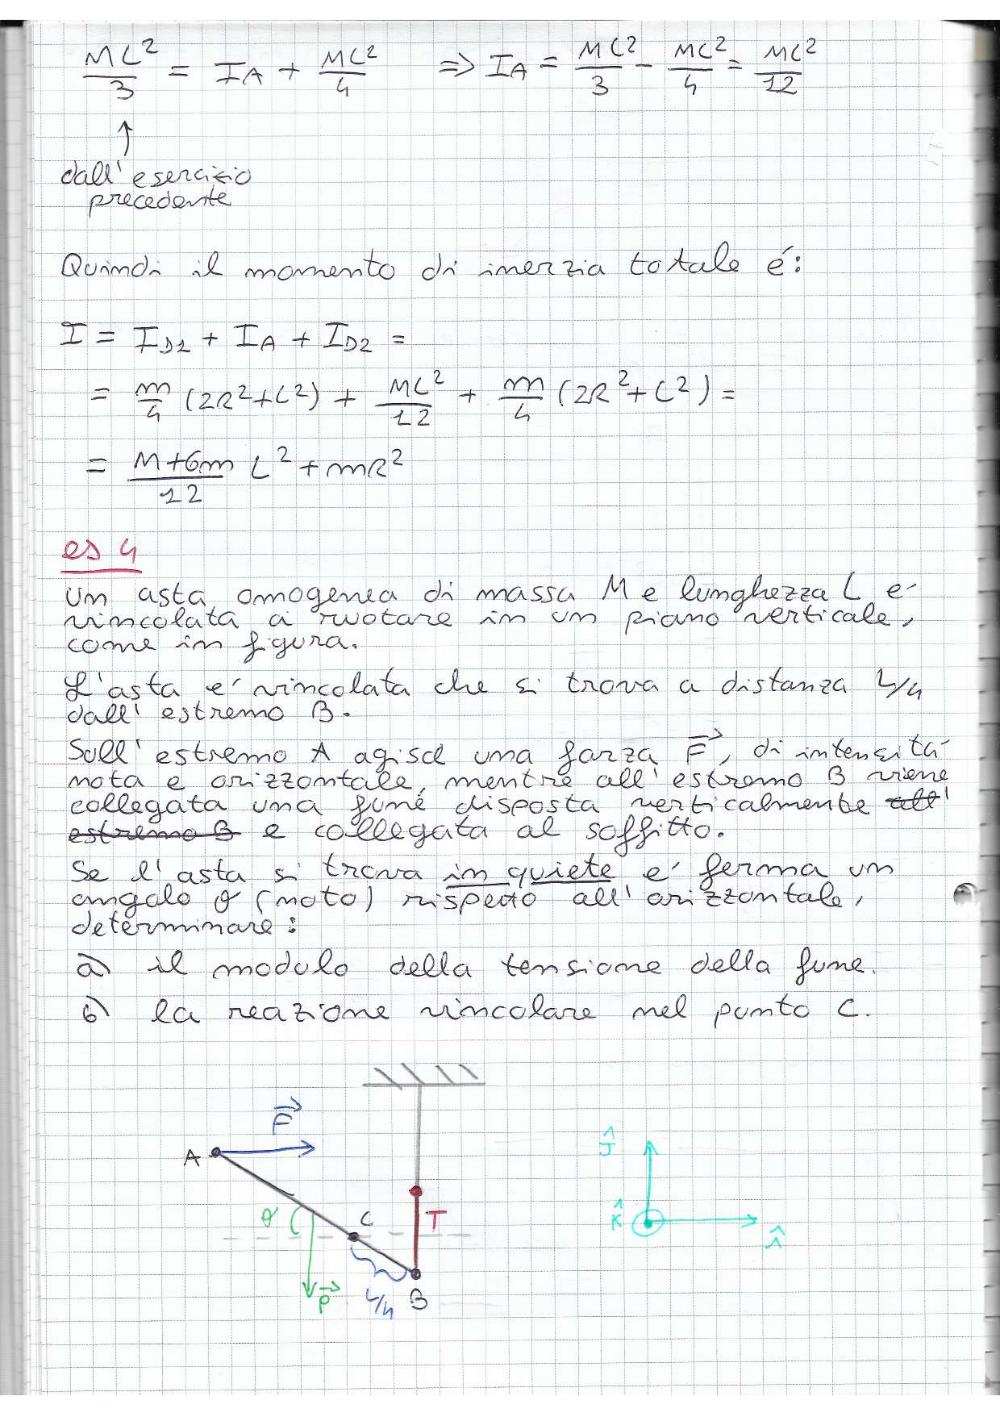 ML²/3 = I_A + ML²/4 => I_A = ML²/3 - ML²/4 = ML²/12
↑
dall'esercizio
precedente
Quindi il momento di inerzia totale é:
I = I_D1 + I_A + I_D2 =
= m/4 (2R²+L²) + ML²/12 + m/4 (2R²+L²) =
= M+6m/12 L² + mR²
es 4
Un asta omogenea di massa M e lunghezza L e'
vincolata a ruotare in un piano verticale,
come in figura.
L'asta e' vincolata che si trova a distanza L/4
dall'estremo B.
Sull'estremo A agisce una forza F⃗, di intensitá
nota e orizzontale, mentre all'estremo B viene
collegata una fune disposta verticalmente all'
estremo B e collegata al soffitto.
Se l'asta si trova in quiete e' ferma un
angolo θ (noto) rispetto all'orizzontale,
determinare:
a) il modulo della tensione della fune.
b) la reazione vincolare nel punto C.
F⃗
A
θ
C
T
P⃗
L/4
B
ĵ
k̂
î